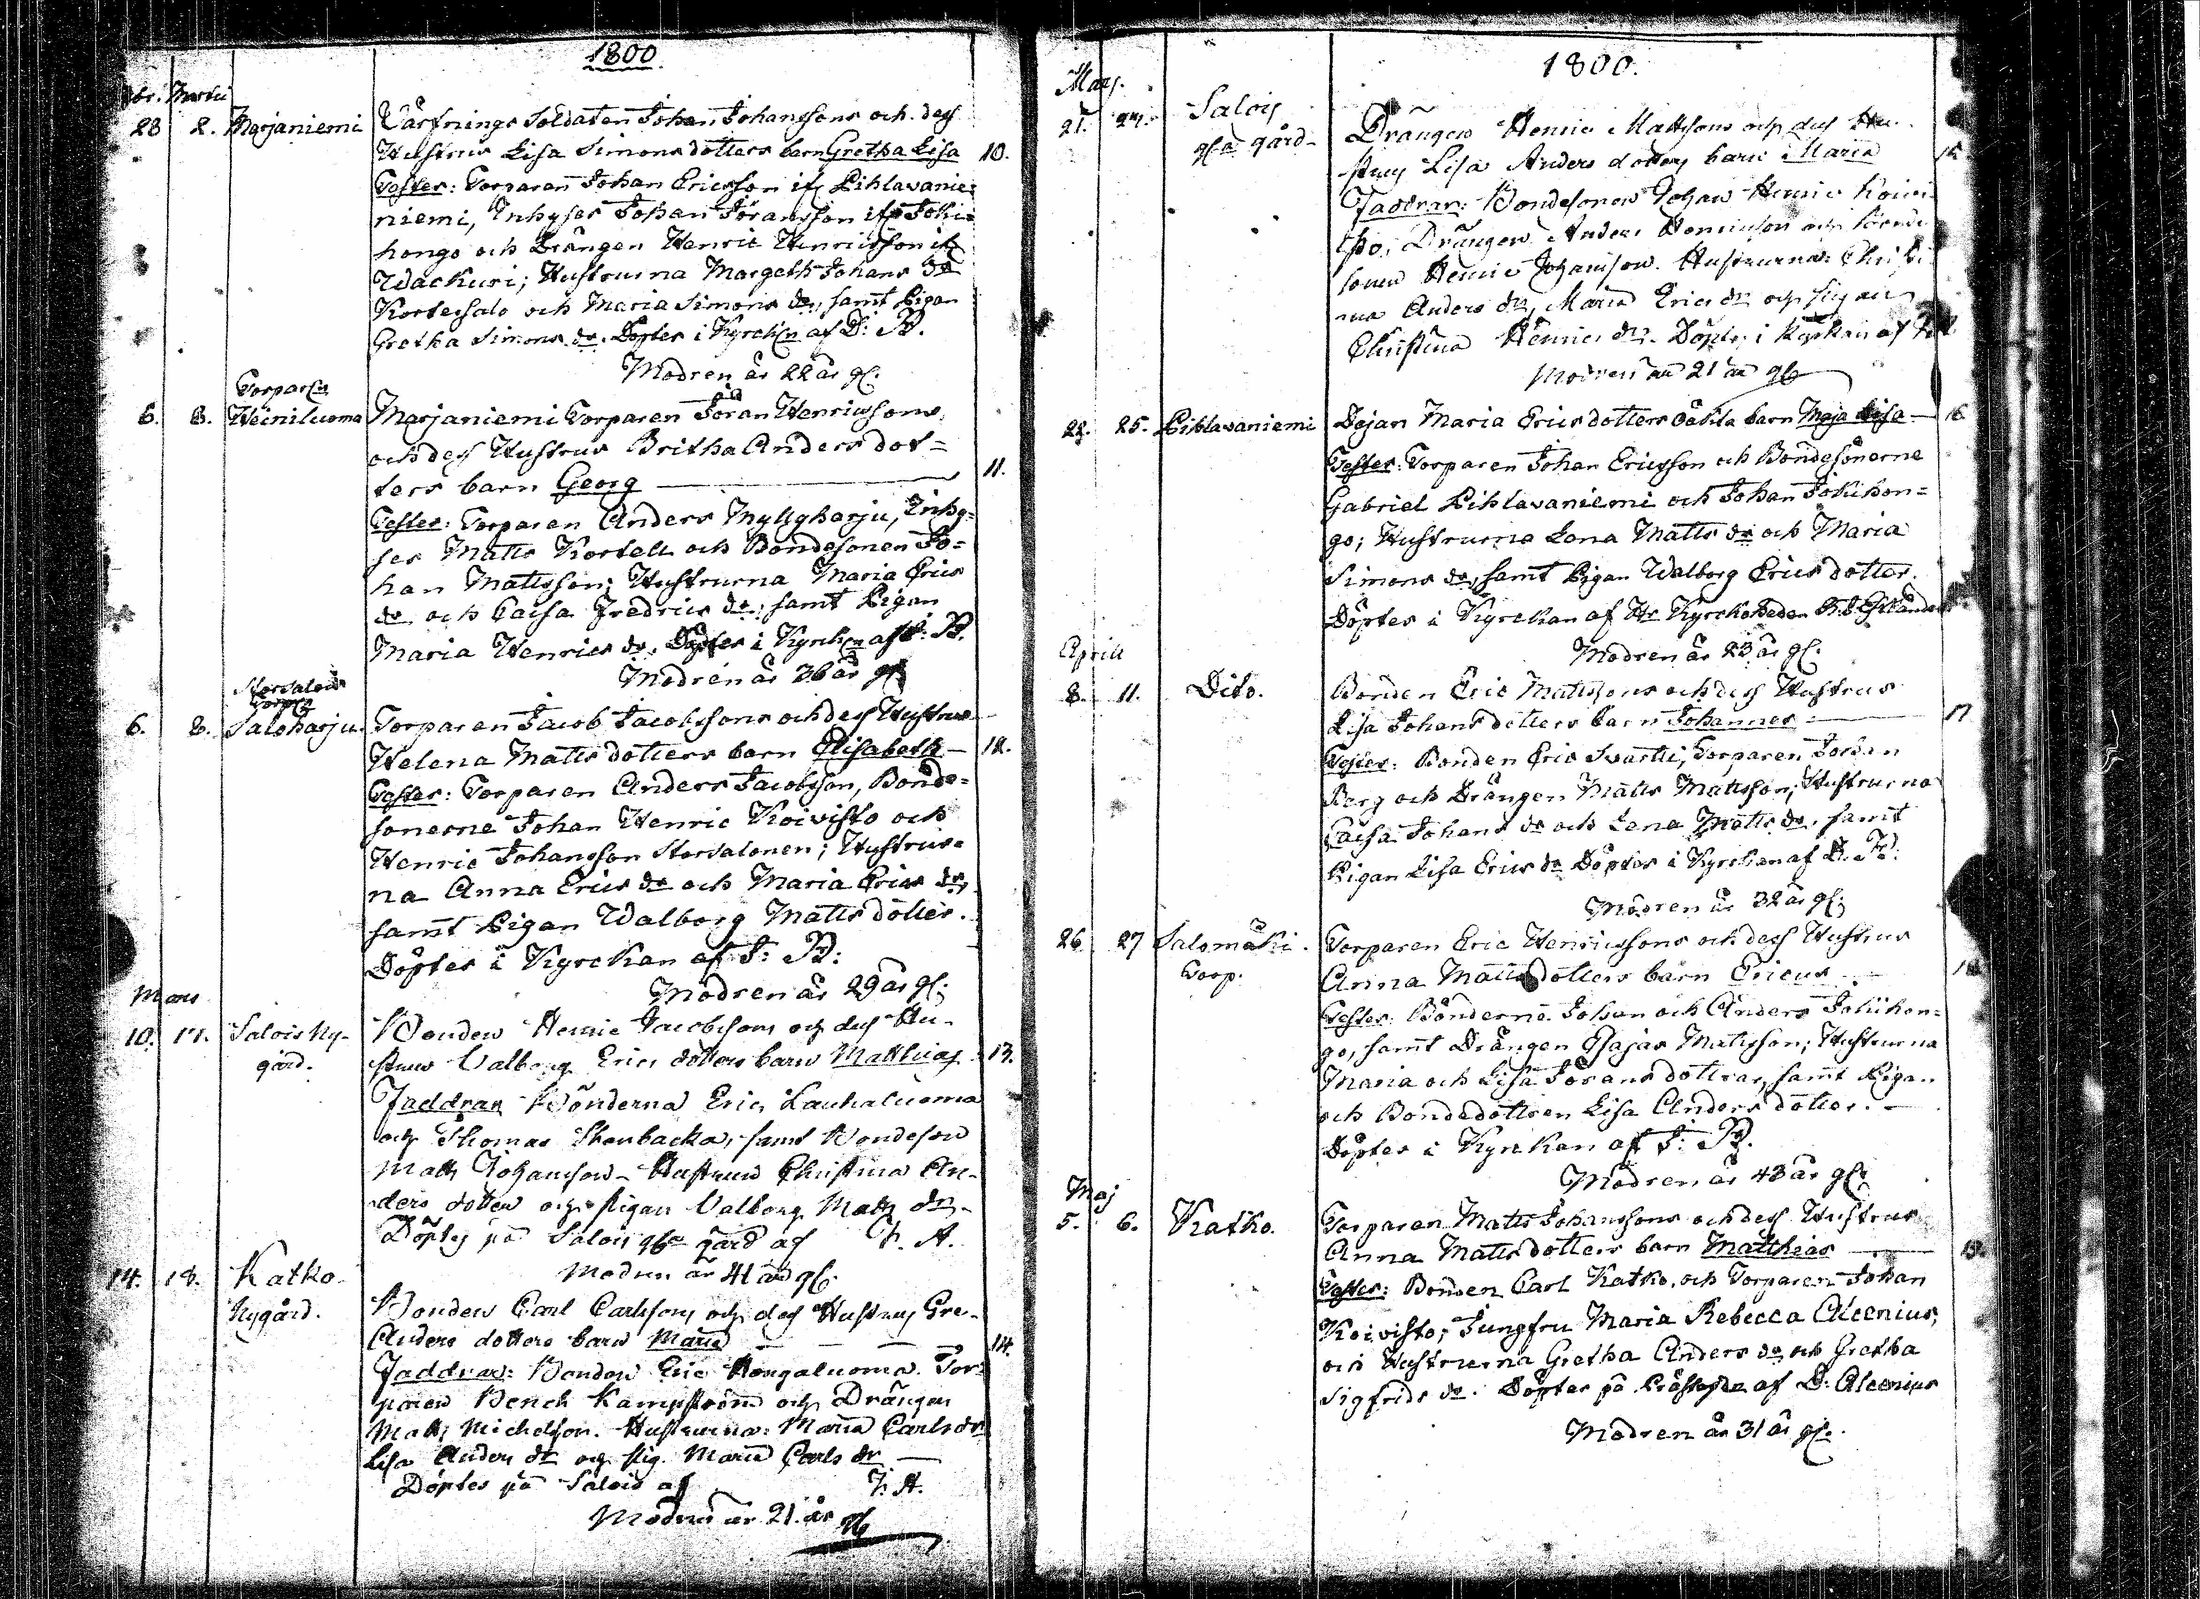 1800.
br. Martii
28 2. Marjaniemi Värfnings Soldaten Johan Johanssons och dess
Hustrus Lisa Simons dotters barn Gretha Lisa 10.
Testes: Torparen Johan Ericsson ifr. Pihlavanie=
niemi, Inhyses Johan Jöransson ifr. Joki=
hongo och Drängen Henric Henricsson ifr
Wackuri; Hustrurna Margeth Johans dr
Kortessalo och Maria Simons dr, samt Pigan
Gretha Simons dr. Döptes i Kyrckn af J: B.
Modren är 22 år gl.
Torparen
6. 8. Heiniluoma Marjaniemi Torparen Jöran Henricssons
och dess Hustrus Britha Anders dot=
ters barn Georg 11.
Testes: Torparen Anders Myllyharju, Inhy=
ses Matts Kortell och Bondesonen Jo=
han Mattsson; Hustrurna Maria Erics
dr och Caisa Fredrics dr; samt Pigan
Maria Henrics dr. Döptes i Kyrckn af J: B.
Modren är 36 år gl.
Storsalois
Torpn
6. 8. Saloharju. Torparen Jacob Jacobssons och dess Hustrus
Helena Matts dotters barn Elisabeth 12.
Testes: Torparen Anders Jacobsson, Bonde=
sonerne Johan Henric Koivisto och
Henric Johansson Storsalonen; Hustrur=
na Anna Erics dr och Maria Erics dr,
samt Pigan Walborg Matts dotter.
Döptes i Kyrckan af J: B:
Modren är 29 år gl.
Mars
10. 17. Salois Ny- Bonden Henric Jacobssons och dess Hu-
gård. strus Valborg Erics dotters barn Matthias 13.
Faddrar Bönderna Eric Lauhaluoma
och Thomas Stenbacka, samt Bondeson
Matts Johansson - Hustrun Christina An-
ders dotter och pigan Valborg Matts dr.
Döptes på Salois gla gård af A.
Modren är 41 år gl.
14. 18. Katko Bonden Carl Carlssons och dess Hustrus Gre-
Nygård. Anders dotters barn Maria 14.
Faddrar: Bonden Eric Hongaluoma. Tor-
paren Bench Kampström och Drängen
Matts Michelsson. Hustrurna: Maria Carls dr
Lisa Anders dr och pig. Maria Carls dr
Döptes på Salois af A.
Modren är 21 år gl
1800.
Mars.
21. Salois Drängen Henric Mattssons och dess Hu-
gla gård- strus Lisa Anders dotters barn Maria 15
Faddrar: Bondesonen Johan Henric Koivi-
sto, Drängen Anders Henricsson och bonde
sonen Henric Johansson. Hustrurna: Christi
na Anders dr, Maria Erics dr och pigan
Christina Henrics dr. Döptes i kyrkan af
Modren är 21 år gl
23. 25. Pihlavaniemi Pigan Maria Erics dotters oäkta barn Maja Lisa 16
Testes: Torparen Johan Ericsson och Bondesönerne
Gabriel Pihlavaniemi och Johan Jokihon=
go; Hustrurna Lena Matts dr och Maria
Simons dr, samt Pigan Walborg Erics dotter.
Döptes i Kyrckan af Hr Kyrckoherden
Modren är 23 år gl.
April
8. 11. Dito. Bonden Eric Mattssons och dess Hustrus
Lisa Johans dotters barn Johannes 17
Testes: Bonden Eric Svartti, Torparen Johan
Berg och Drängen Matts Mattsson; Hustrurna
Caisa Johans dr och Lena Matts dr. samt
Pigan Lisa Erics dr Döptes i Kyrckan af
Modren är 32 år gl.
26. 27 Salomäki Torparen Eric Henricssons och dess Hustrus
Torp. Anna Matts dotters barn Ericus 18
Testes: Bönderne Johan och Anders Jokihon=
go, samt Drängen Esajas Mattsson; Hustrurna
Maria och Lisa Jörans döttrar, samt Pigan
och Bondedottren Lisa Anders dotter.
Döptes i Kyrkan af J: B.
Modren är 43 år gl.
Maj
5. 6. Katko. Torparen Matts Johanssons och dess Hustrus
Anna Matts dotters barn Matthias 19.
Testes: Bonden Carl Katko, och Torparen Johan
Koivisto; Jungfru Maria Rebecca Alcenius,
och Hustrurna Gretha Anders dr och Gretha
Sigfrids dr. Döptes på af D: Alcenius
Modren är 31 år gl.